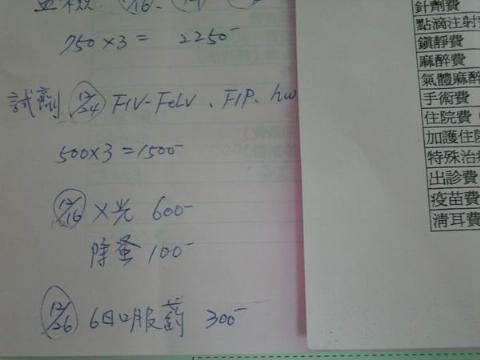 血檢 12/16 12/19
750×3= 2250-
試劑 12/24 FIV-FeLV、FIP、hw
500×3=1500-
12/16 X光 600-
除蚤 100-
12/26 6日口服葯 300-
針劑費
點滴注射費
鎮靜費
麻醉費
氣體麻醉
手術費
住院費(
加護住院
特殊治療
出診費
疫苗費
清耳費